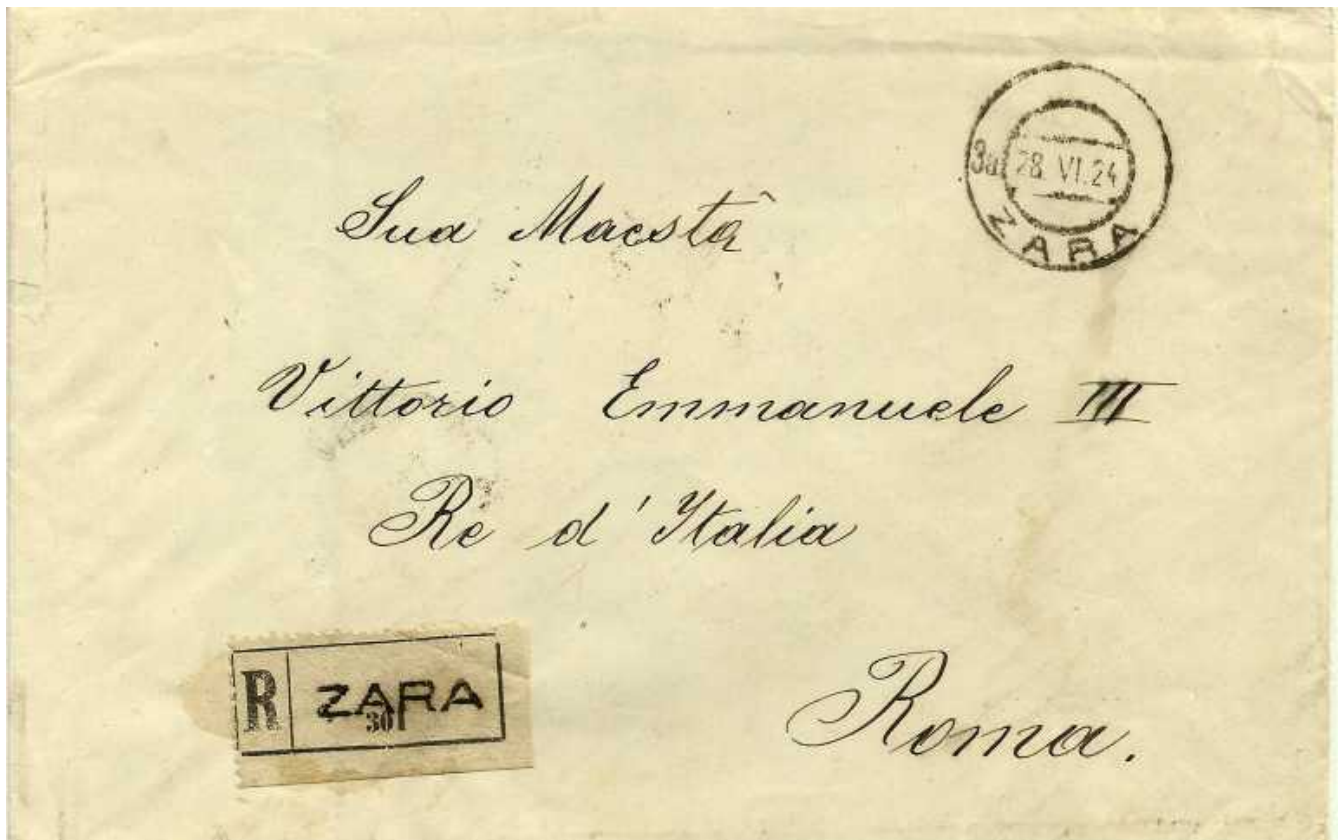 3a 28 VI.24
ZARA
Sua Maestà
Vittorio Emmanuele III
Re d'Italia
R ZARA
301
Roma.